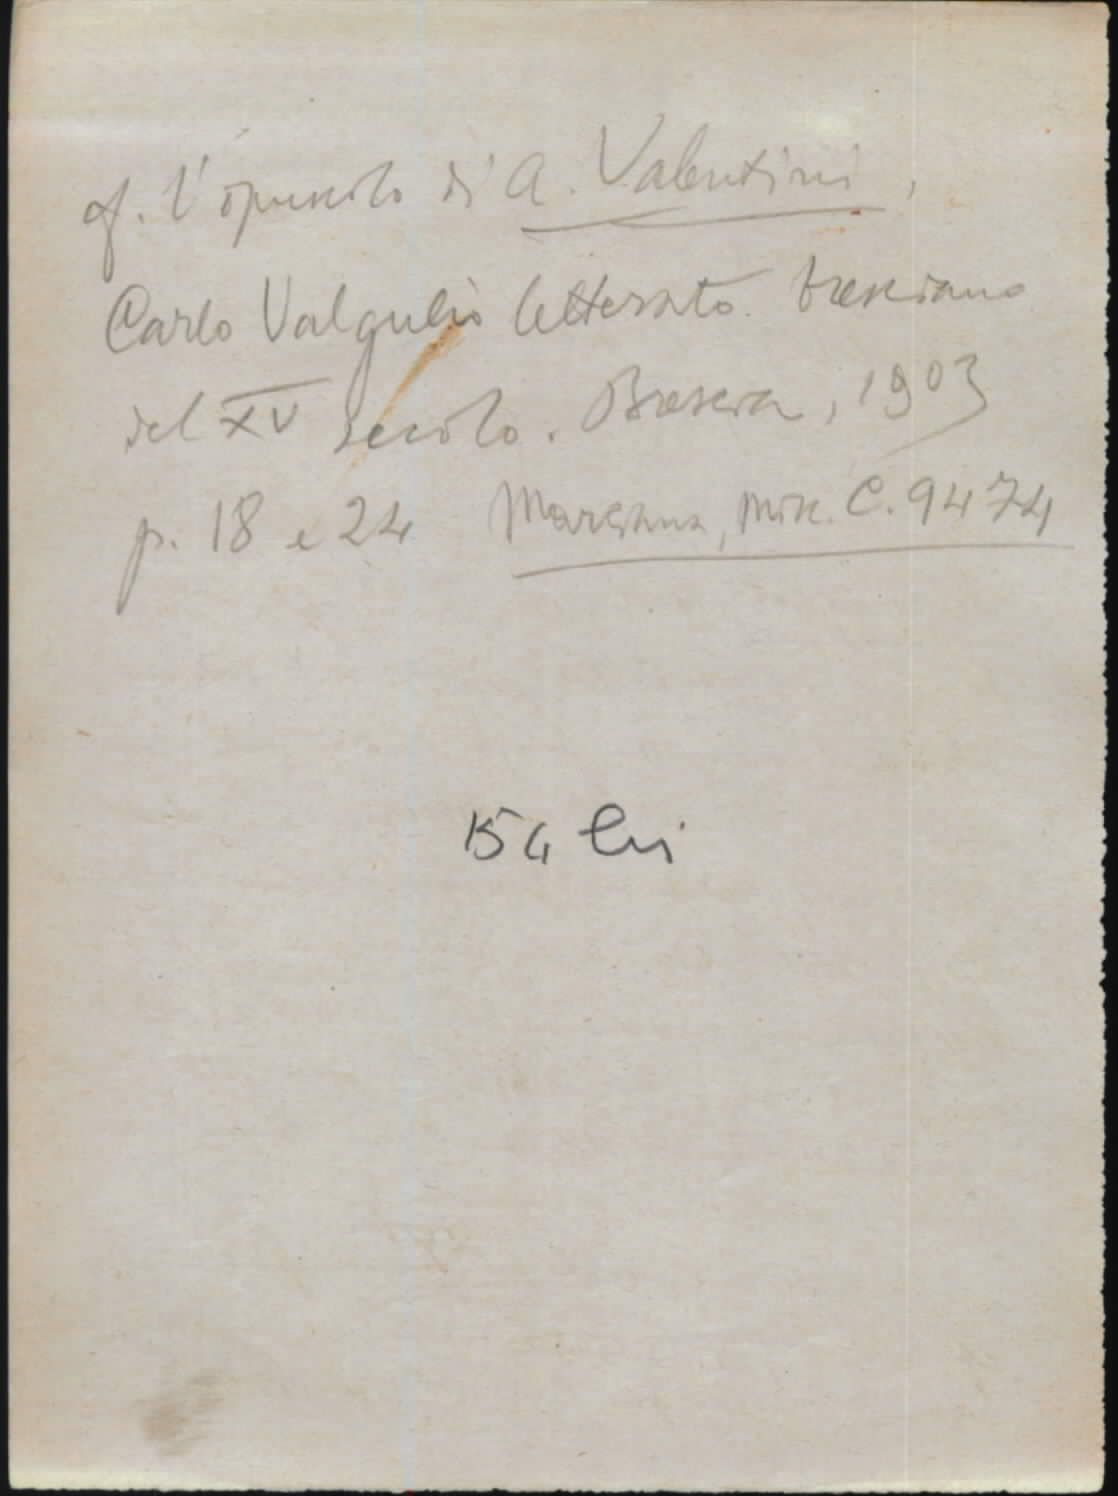 cf. l'opuscolo di A. Valentini,
Carlo Valgulio letterato bresciano
del XV secolo. Brescia, 1903
p. 18 e 24 Marciana, Misc. C. 9474
154